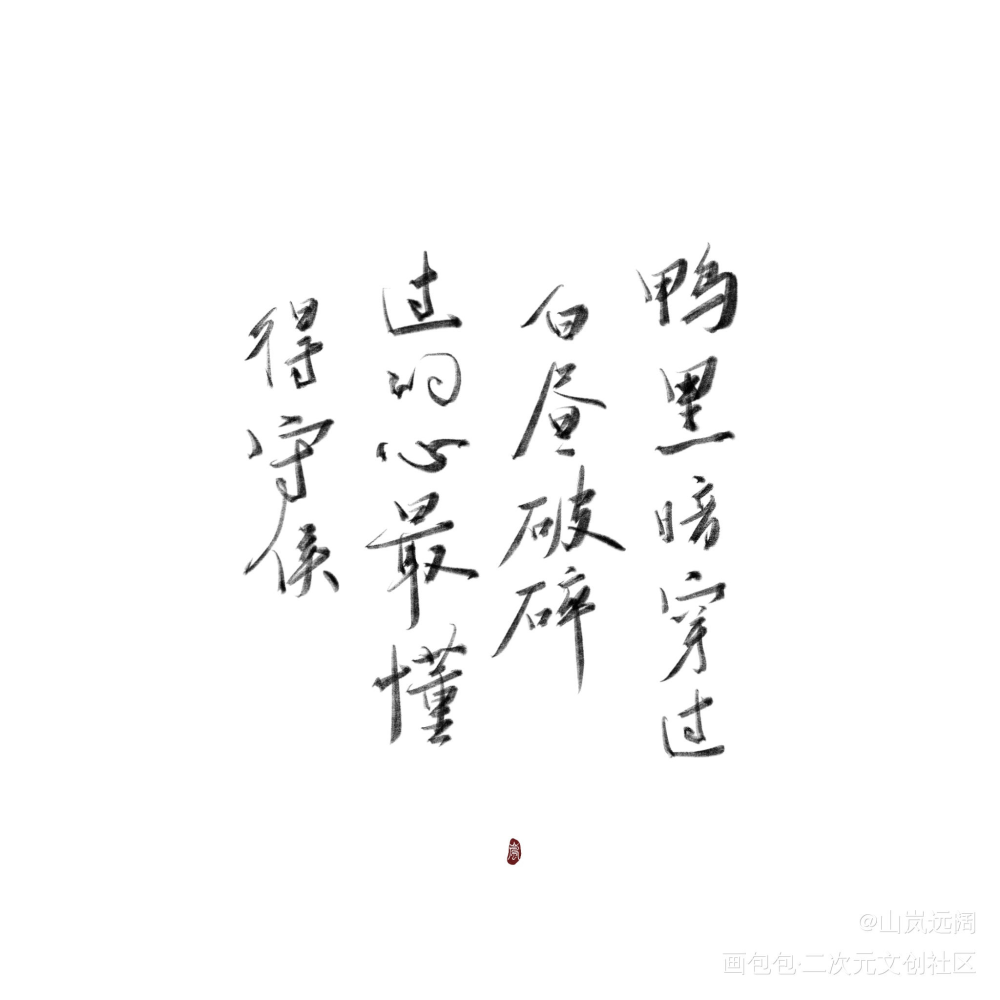 鸭黑暗穿过
白昼破碎
过的心最懂
得守候
@山岚远阔
画包包·二次元文创社区